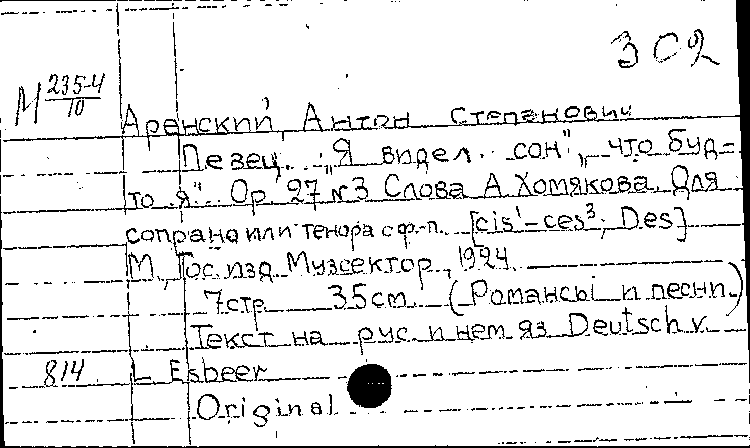 302
М 235-4/10
Аренский, Антон Степанович
Певец. „Я видел сон", „что буд-
то я". Op 27 №3 Слова А Хомякова. Для
сопрано или тенора с ф.-п. [cis¹-ces³; Des]
М., Гос. изд. Музсектор, 1924
7 стр. 35 cm. (Романсы и песни.)
Текст на рус. и нем яз Deutsch v.
814 L Esbeer
Original